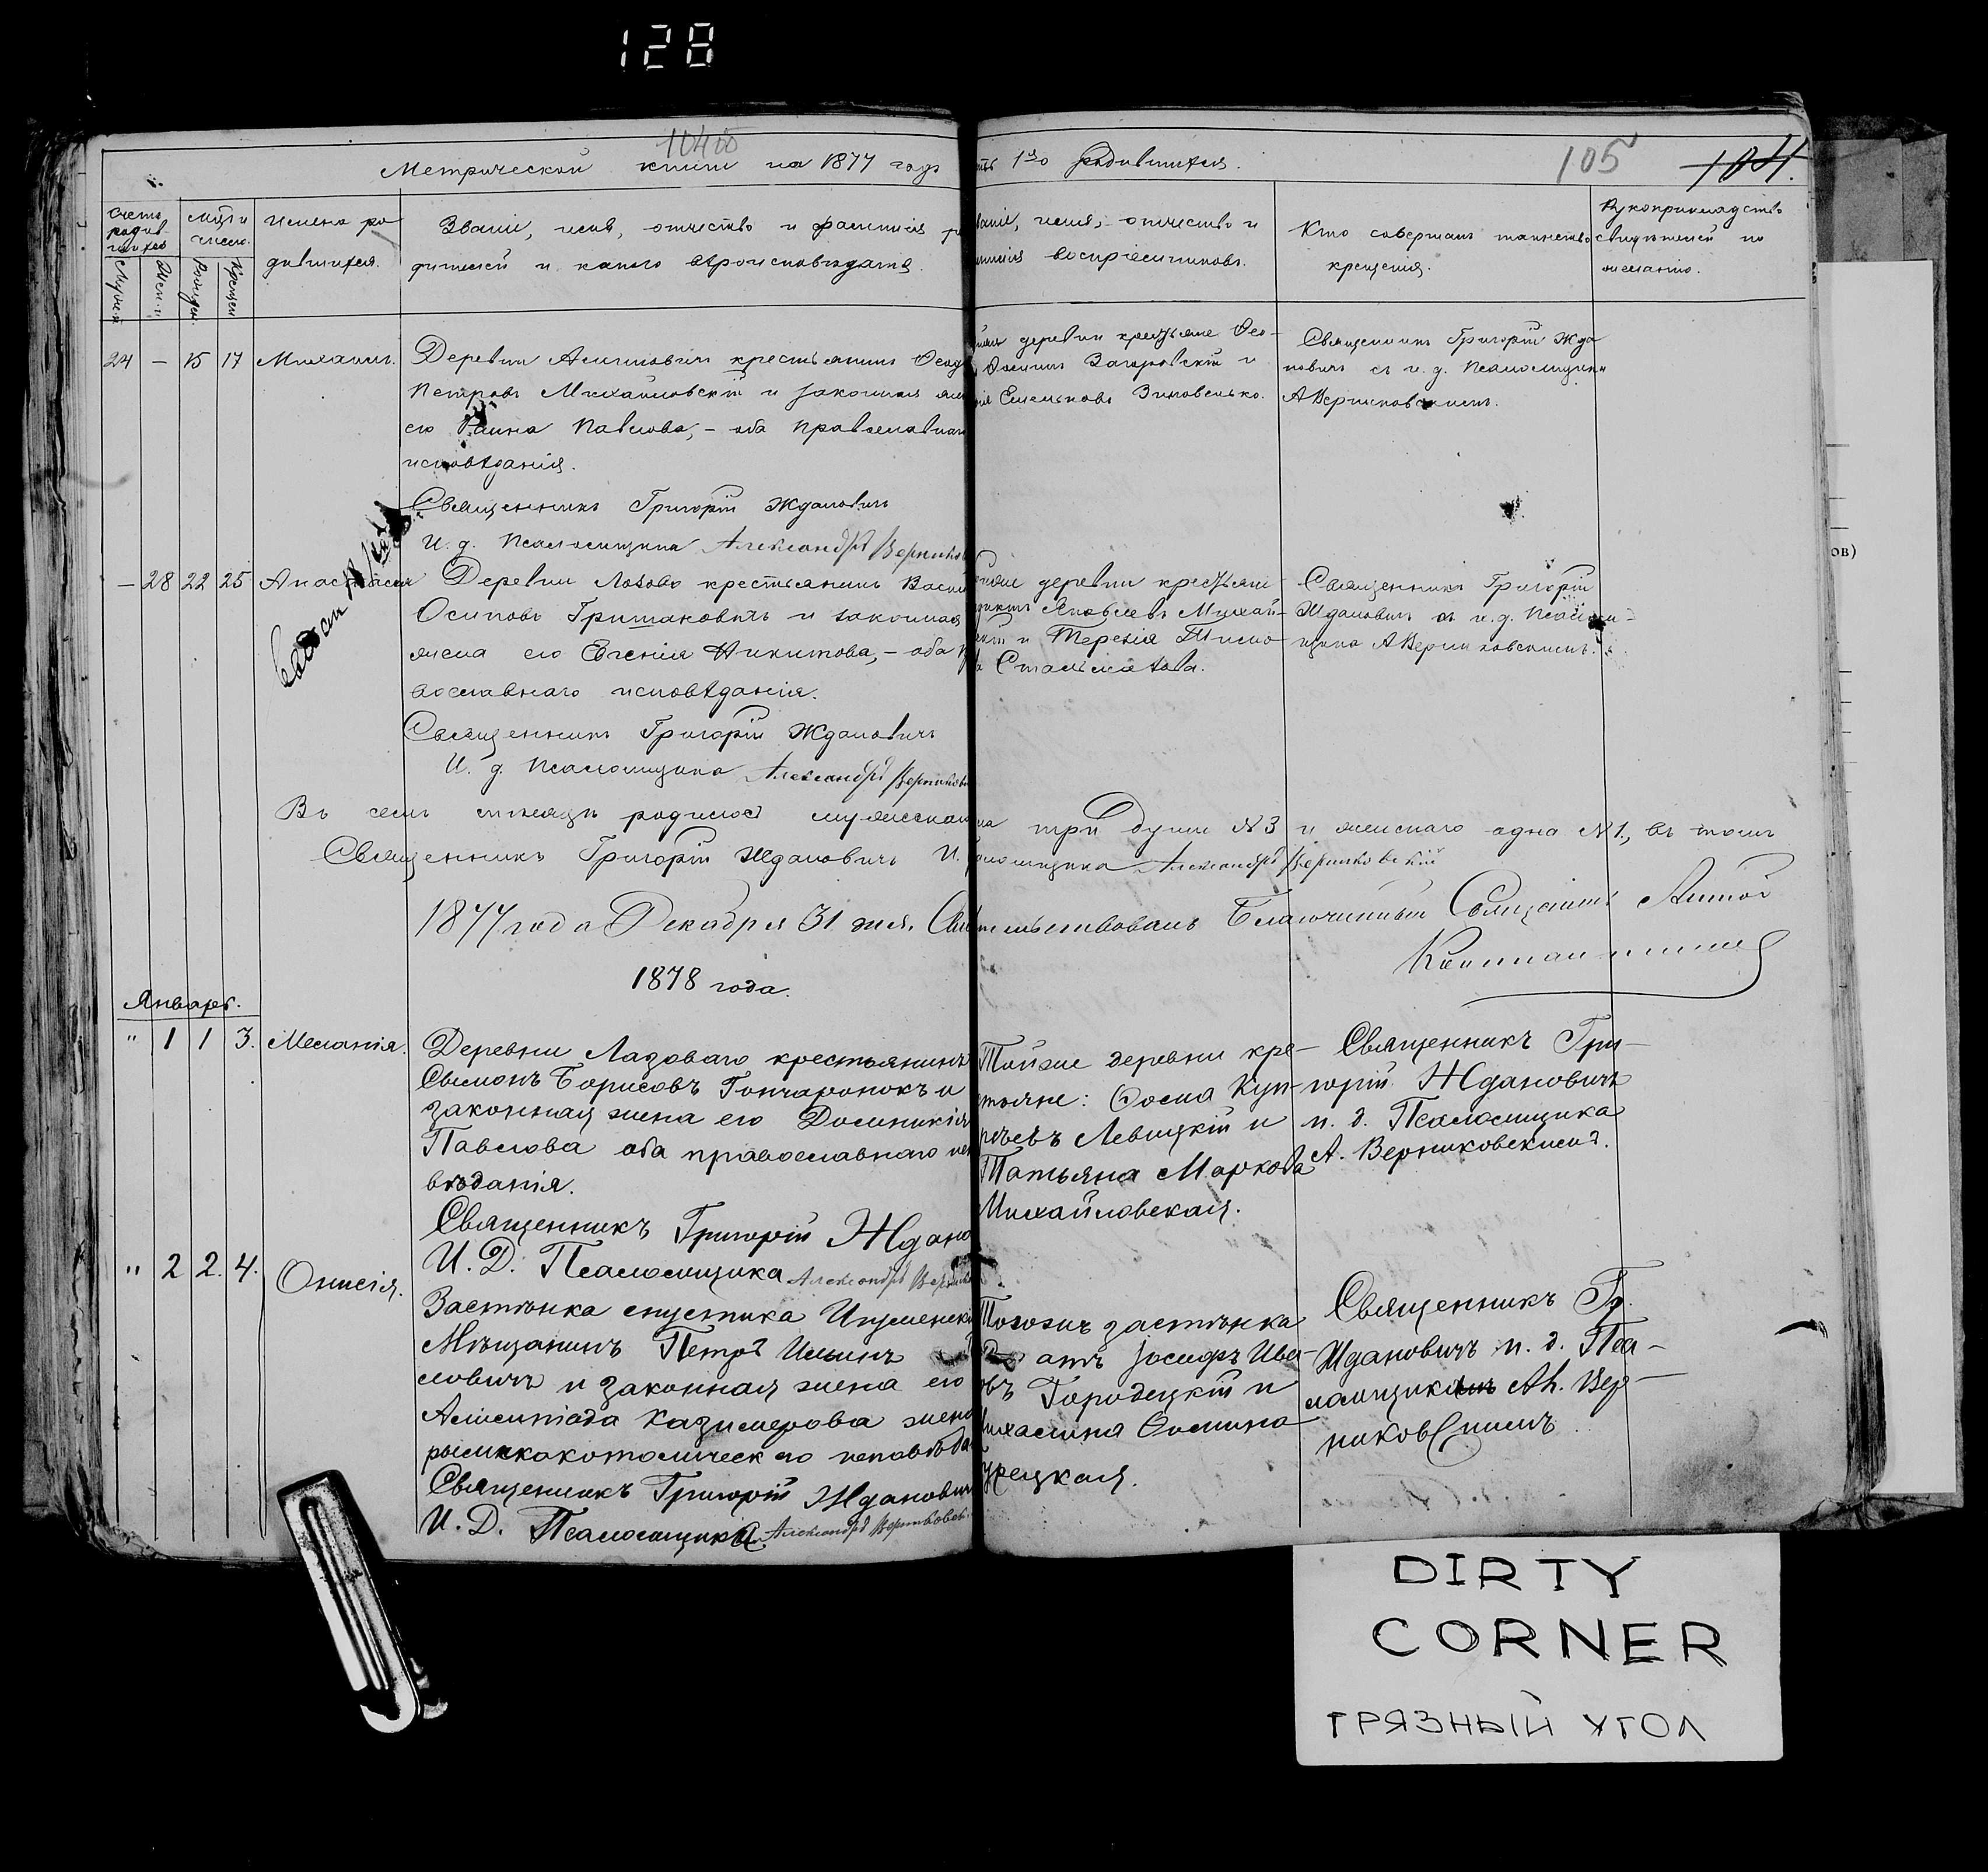 128
Метрической книги на 1877 годъ
часть 1го родившихся.
105
104.
Счетъ родив-шихся
Муж.
Жен.
Мѣсяцъ и число.
Рожден.
Крещен.
Имена ро
дившихся.
Званіе, имя, отчество и фамилія ро
дителей и какого вѣроисповѣданія.
Званіе, имя, отчество и
фамилія воспріемниковъ.
Кто совершалъ таинство
крещенія.
Рукоприкладство
свидѣтелей по
желанію.
24 — 15 17 Михаилъ.
Деревни крестьянинъ
Петровъ Михайловскій и законная жена
его Павлова, – оба православнаго
исповѣданія.
Священникъ Григорій Ждановичъ
И. д. Псаломщика Александръ Верниковскій
деревни крестьяне
Загоровскій и
Емельянова Зиновенько.
Священникъ Григорій Жда
новичъ съ и. д. Псаломщика
А Верниковскимъ.
— 28 22 25 Анастасія
Деревни Лозово крестьянинъ
Осиповъ Гришаковичъ и законная
жена его Евгенія Никитова, – оба пра
вославнаго исповѣданія.
Священникъ Григорій Ждановичъ
И. д. Псаломщика Александръ Верниковскій
деревни крестьяне
Яковлевъ Михай-
и Терезія
Священникъ Григорій
Ждановичъ съ и. д. Псалом-
щика А Верниковскимъ.
Въ семъ мѣсяцѣ родилось мужескаго пола три души № 3 и женскаго одна № 1., въ томъ
Священникъ Григорій Ждановичъ И. д. Псаломщика Александръ Верниковскій
1877 года Декабря 31 дня. Свидѣтельствовалъ Благочинный Священникъ
1878 года.
Январь.
" 1 1 3. Меланія.
Деревни Лазоваго крестьянинъ
Сымонъ Борисовъ Гончаронокъ и
законная жена его Доминикія
Павлова оба православнаго испо
вѣданія.
Священникъ Григорій Ждано
И. Д. Псаломщика Александръ
Тойже деревни кре-
стьяне: Фома Куп-
реевъ Левицкій и
Татьяна Маркова
Михайловская.
Священникъ Гри-
горій Ждановичъ
и. д. Псаломщика
А. Верниковскимъ.
" 2 2. 4. Онисія.
Застѣнка
Мѣщанинъ Петръ Ильинъ
ловичъ и законная жена его
Казимерова жена
римскокатолическаго исповѣда
Священникъ Григорій Ждановичъ
И. Д. Псаломщика Александръ Верниковскій
Тогожъ застѣнка
Іосифъ Ива-
овъ Городецкій и
Михалина
Священникъ Гр.
Ждановичъ и. д. Пса-
ломщика Ал. Вер-
никовскимъ.
ов)
DIRTY
CORNER
ГРЯЗНЫЙ УГОЛ